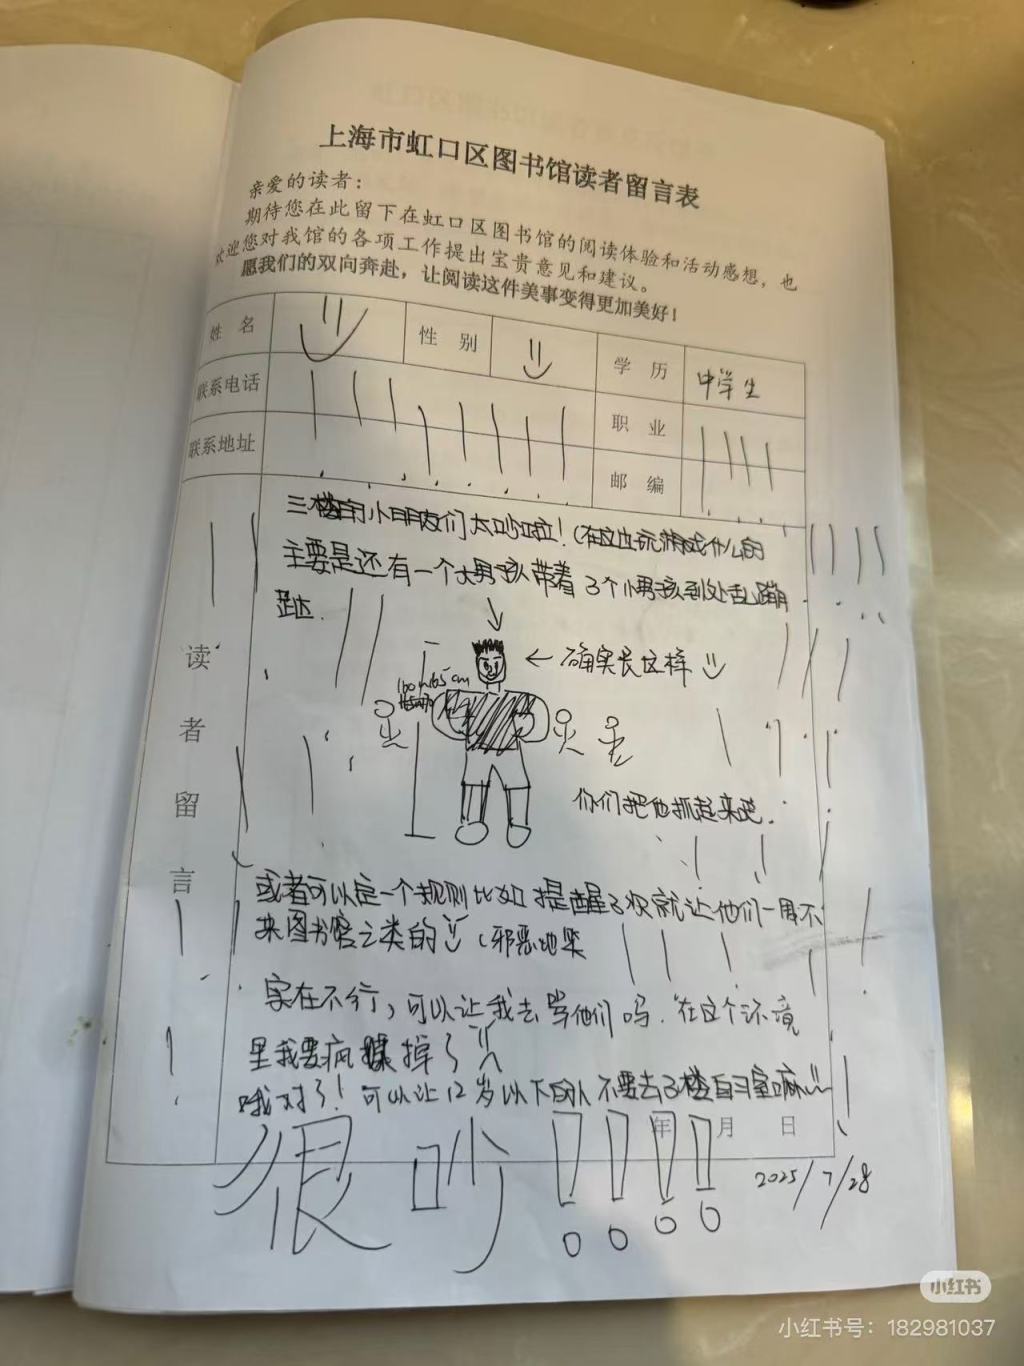 上海市虹口区图书馆读者留言表
亲爱的读者：
期待您在此留下在虹口区图书馆的阅读体验和活动感想，也
欢迎您对我馆的各项工作提出宝贵意见和建议。
愿我们的双向奔赴，让阅读这件美事变得更加美好！
姓 名
性 别
学 历 中学生
联系电话
职 业
联系地址
邮 编
读者留言
三楼的小朋友们太吵啦！(在这边玩游戏什么的
主要是还有一个大男孩带着3个小男孩到处乱蹦
跶.
← 确实长这样
160~165cm
你们把他抓起来吧.
或者可以定一个规则比如提醒3次就让他们一周不
来图书馆之类的 (邪恶地笑
实在不行，可以让我去 他们吗.在这个环境
里我要疯掉了
哦对了！可以让12岁以下的人不要去3楼自习室嘛
很吵！！！！
年 月 日
2025/7/28
小红书
小红书号：182981037